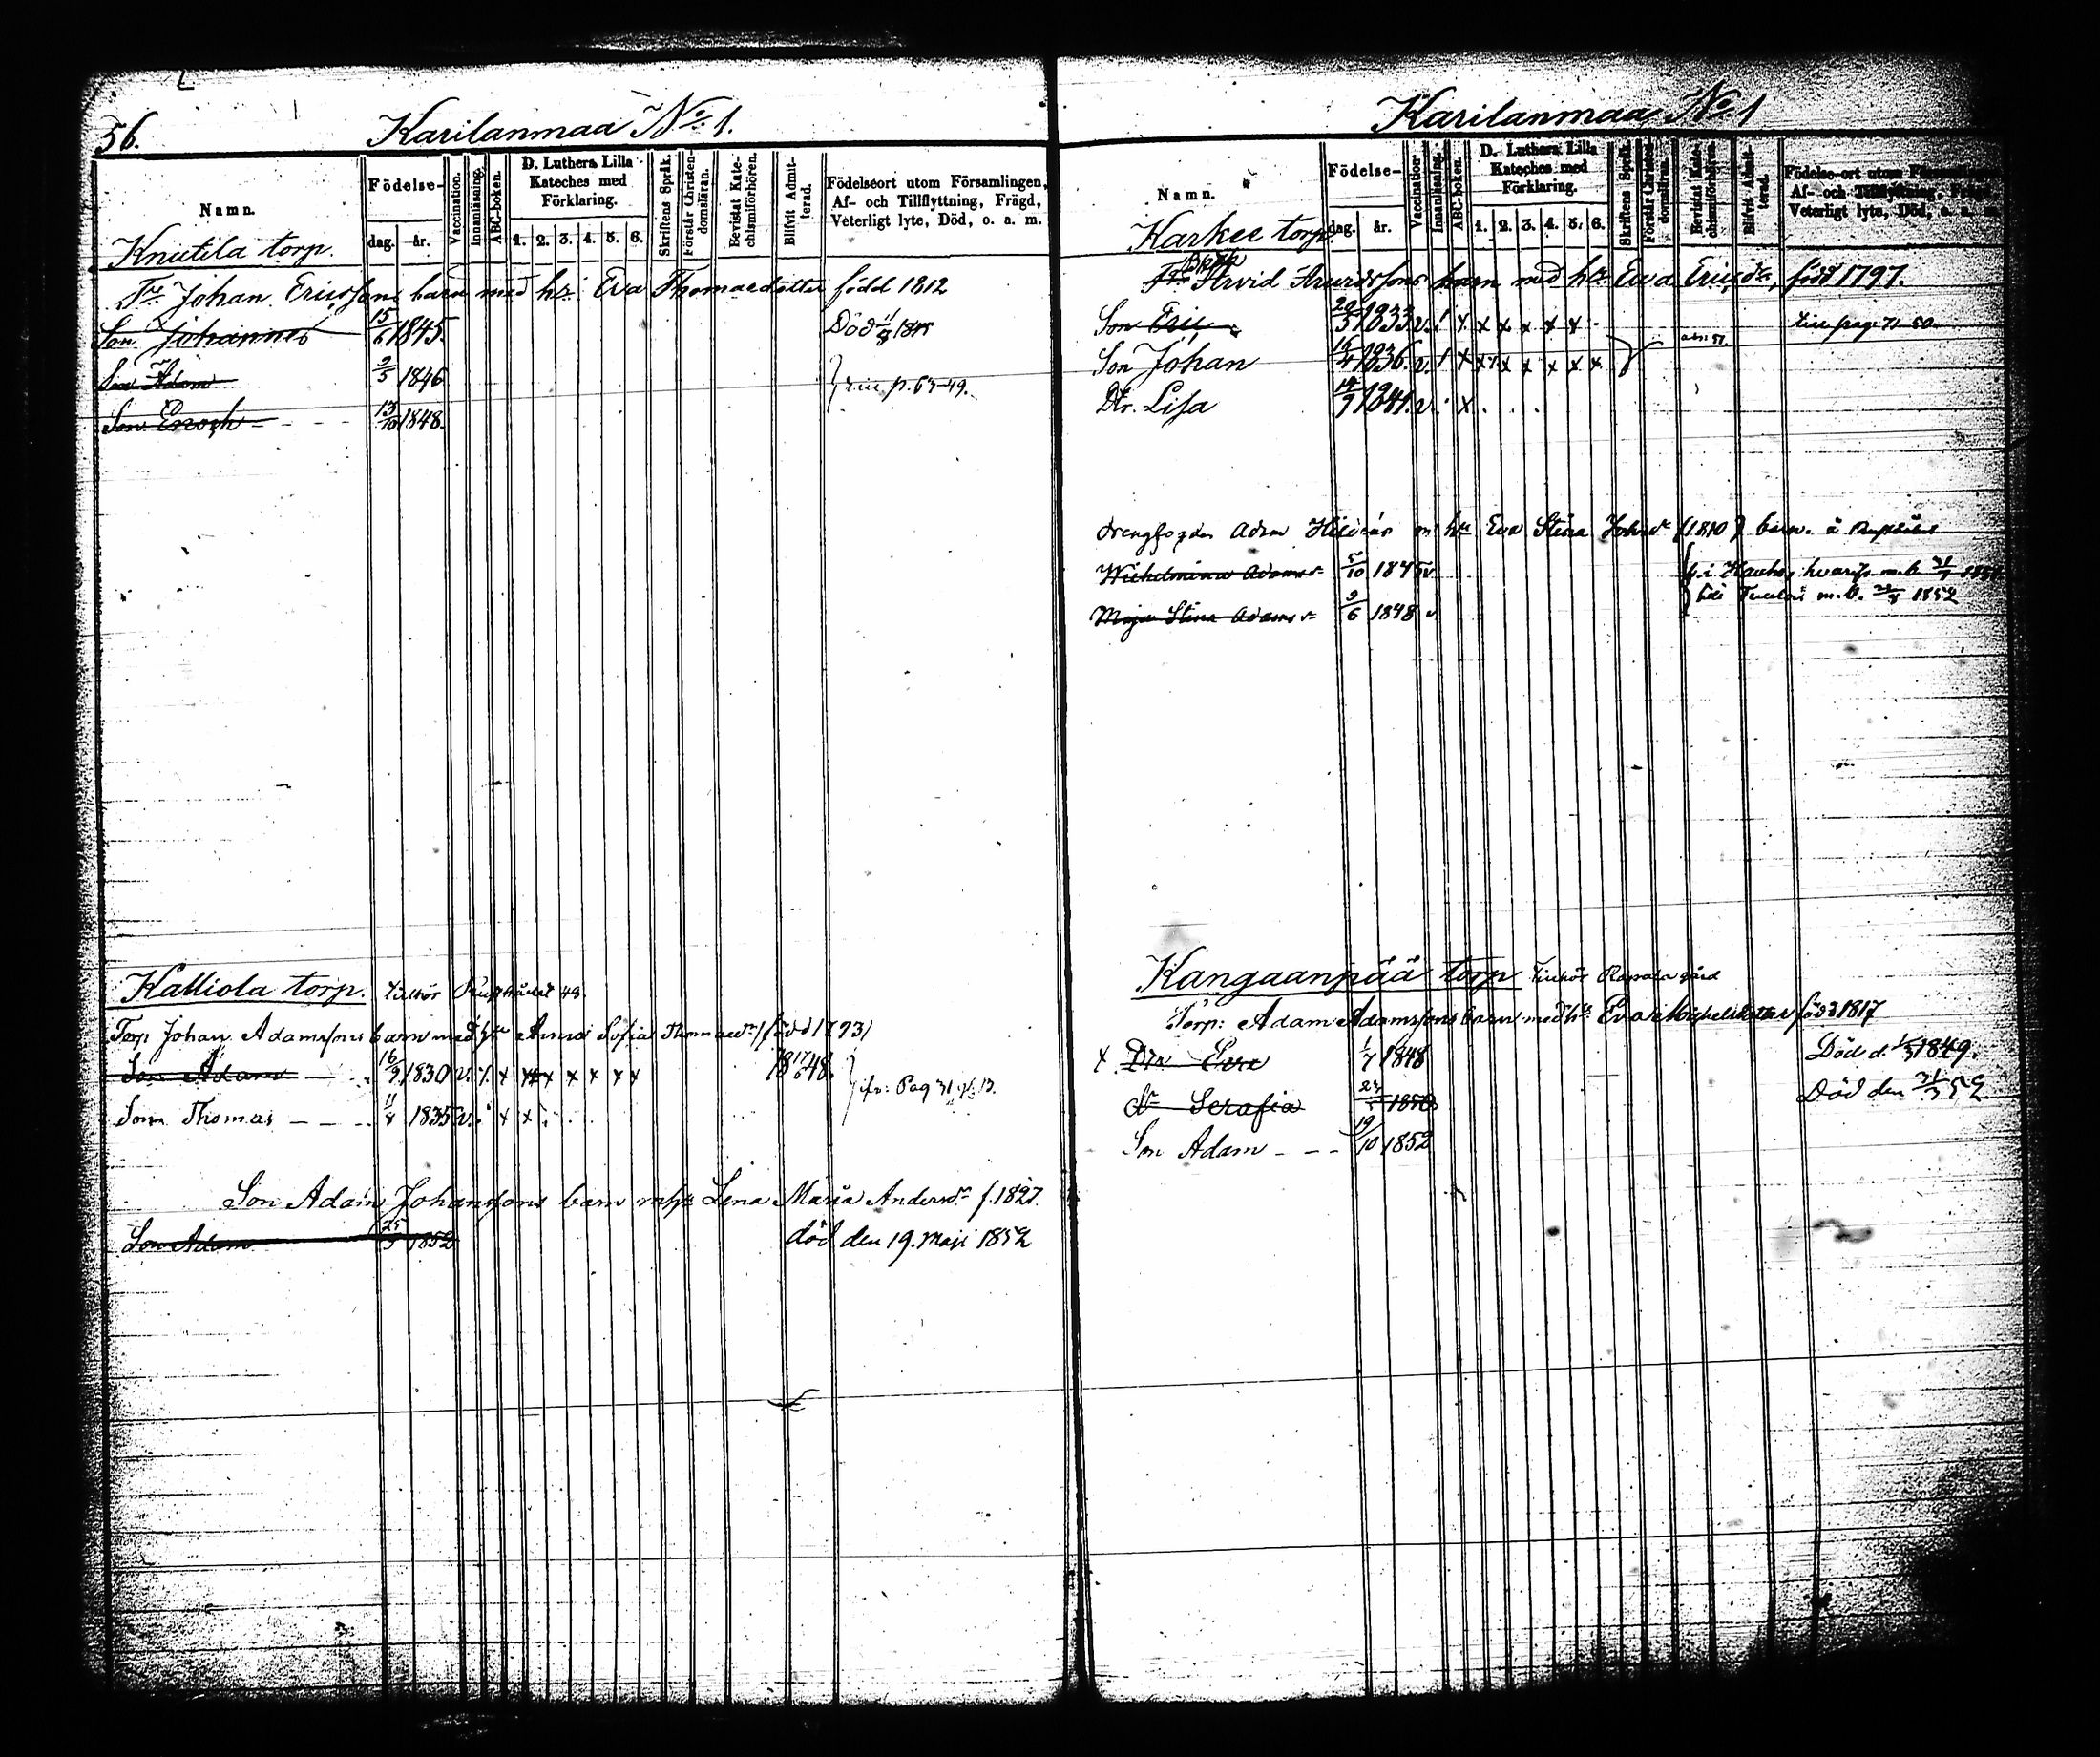 56.
Karilanmaa No 1.
Namn.
Födelse-
dag.
år.
Vaccination.
Innanläsning.
ABC-boken.
D. Luthers Lilla
Kateches med
Förklaring.
1. 2. 3. 4. 5. 6.
Skriftens Språk.
Förstår Christen-
domsläran.
Bevistat Kate-
chismiförhören.
Blifvit Admit-
terad.
Födelseort utom Församlingen,
Af- och Tillflyttning, Frägd,
Veterligt lyte, Död, o. a. m.
Knutila torp.
Johan Ericssons barn med hr. Eva Thomaedotter född 1812
Son Johannes 15/6 1845. Död
Son Adam 2/5 1846 p. 63-49.
Son Enoch 13/10 1848.
Kalliola torp. 49.
Torp Johan Adamssons barn med Anna Sofia Thomaedr (född 1793)
Son Adam 16/9 1830 v. x x x x x x 18 17/6 48.
Pag 31
Son Thomas 11/8 1835 v. x x
Son Adam Johanssons barn Lena Maria Andersdr f. 1827.
Son Adam 25/3 1852 död den 19. Maji 1852
Karilanmaa No. 1
Namn.
Födelse-
dag.
år.
Vaccination
Innanläsning.
ABC-boken.
D. Luthers Lilla
Kateches med
Förklaring.
1. 2. 3. 4. 5. 6.
Skriftens Språk.
Förstår Christen-
domsläran.
Bevistat Kate-
chismiförhören.
Blifvit Admit-
terad.
Födelse-ort utom
Af- och Tillflyttning, Frägd,
Veterligt lyte, Död, o. a. m.
Karkee torp.
Arvid Arvidssons barn med hr. Eva Ericsdr, född 1797.
Son Eric 1833 v. x x x x x page 71
Son Johan 16/4 1836. v. x x x x x x
Dtr. Lisa 1841. v. x
Adam Eva Stina (1810) barn.
Wilhelmina Adamsdr 5/10 1845 v 1851
Maja Stina Adamsdr 9/6 1848 v m.b. 1852
Kangaanpää torp gård
Torp: Adam Adamssons barn med hr Eva Michelsdotter född 1817
x Dtr Eva 1/7 1848 Död d. 1849.
dr Serafia 1850 Död den 21/3 52
Son Adam 19/10 1852